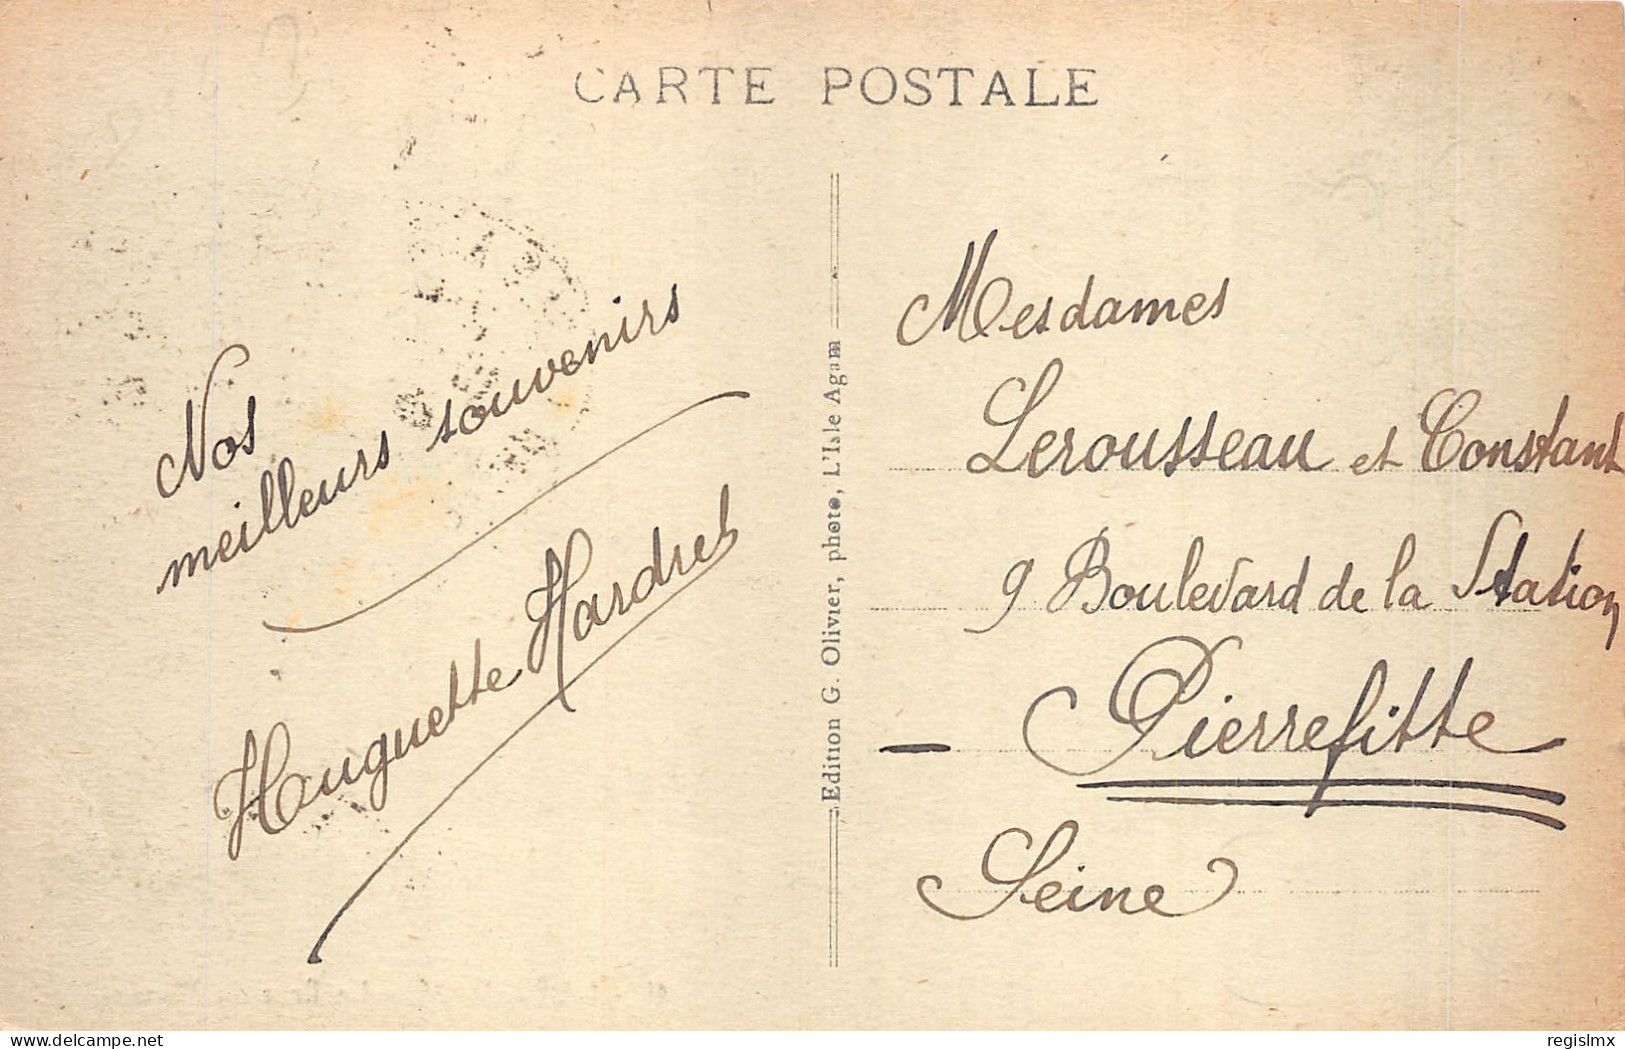 CARTE POSTALE
Nos
meilleurs souvenirs
Huguette Hardret
Edition G. Olivier, photo, L'Isle Adam
Mesdames
Lerousseau et Constant
9 Boulevard de la Station
- Pierrefitte
Seine
delcampe.net
regislmx